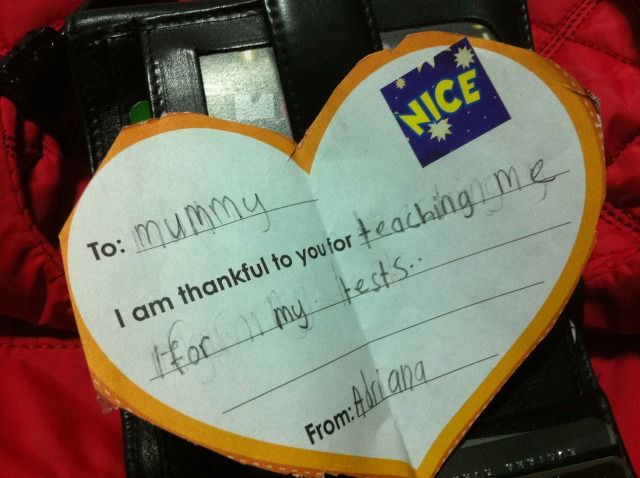 NICE
To: mummy
I am thankful to you for teaching me
for my tests..
From: Adriana